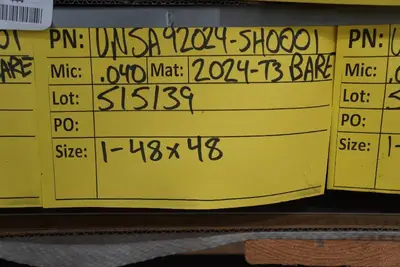 PN: UNSA92024-SH0001
Mic: .040 Mat: 2024-T3 BARE
Lot: 515139
PO:
Size: 1-48x48
BARE
PN:
Mic:
Lot:
PO:
Size: